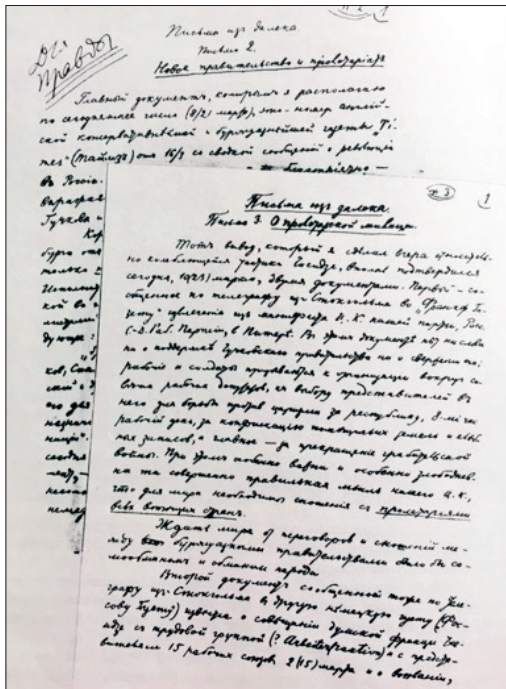 № 2 1
Для
Правды
Письма изъ далека.
Письмо 2.
Новое правительство и пролетаріатъ
Главный документъ, которымъ я располагаю
по сегодняшнее число (8/21 марта), это – номеръ англій-
ской консервативнѣйшей и буржуазнѣйшей газеты „Ti-
mes" (Таймсъ) отъ 16/3 со сводкой сообщеній о революціи
въ Россіи.
Гучкова и
только
№ 3 1
Письма изъ далека.
Письмо 3. О пролетарской милиціи.
Тотъ выводъ, который я сдѣлалъ вчера относительно
колеблющейся тактики Чхеидзе, вполнѣ подтвердился
сегодня, 10(23) марта, двумя документами. Первый – со-
общенное по телеграфу изъ Стокгольма въ „Франкф. Га-
зету" извлеченіе изъ манифеста Ц. К. нашей партіи, Росс.
С.-Д. Раб. Партіи, въ Питерѣ. Въ этомъ документѣ нѣтъ ни слова
ни о поддержкѣ Гучковскаго правительства ни о сверженіи его;
рабочіе и солдаты призываются къ организаціи вокругъ со-
вѣта рабочихъ депутатовъ, къ выбору представителей въ
него для борьбы противъ царизма за республику, 8-ми час.
рабочій день, за конфискацію помѣщичьихъ земель и хлѣб-
ныхъ запасовъ, а главное – за прекращеніе грабительской
войны. При этомъ особенно важна и особенно злободнев-
на та совершенно правильная мысль нашего Ц. К.,
что для мира необходимы сношенія съ пролетаріями
всѣхъ воюющихъ странъ.
Ждать мира отъ переговоровъ и сношеній ме-
жду буржуазными правительствами было бы са-
мообманомъ и обманомъ народа.
Второй документъ сообщенное тоже по теле-
графу изъ Стокгольма въ другую нѣмецкую газету (Фос-
сову Газету) извѣстіе о совѣщаніи думской фракціи Чхе-
идзе съ трудовой группой (? Arbeiterfraction) и съ предста-
вителями 15 рабочихъ союзовъ 2(15) марта и о воззваніи,